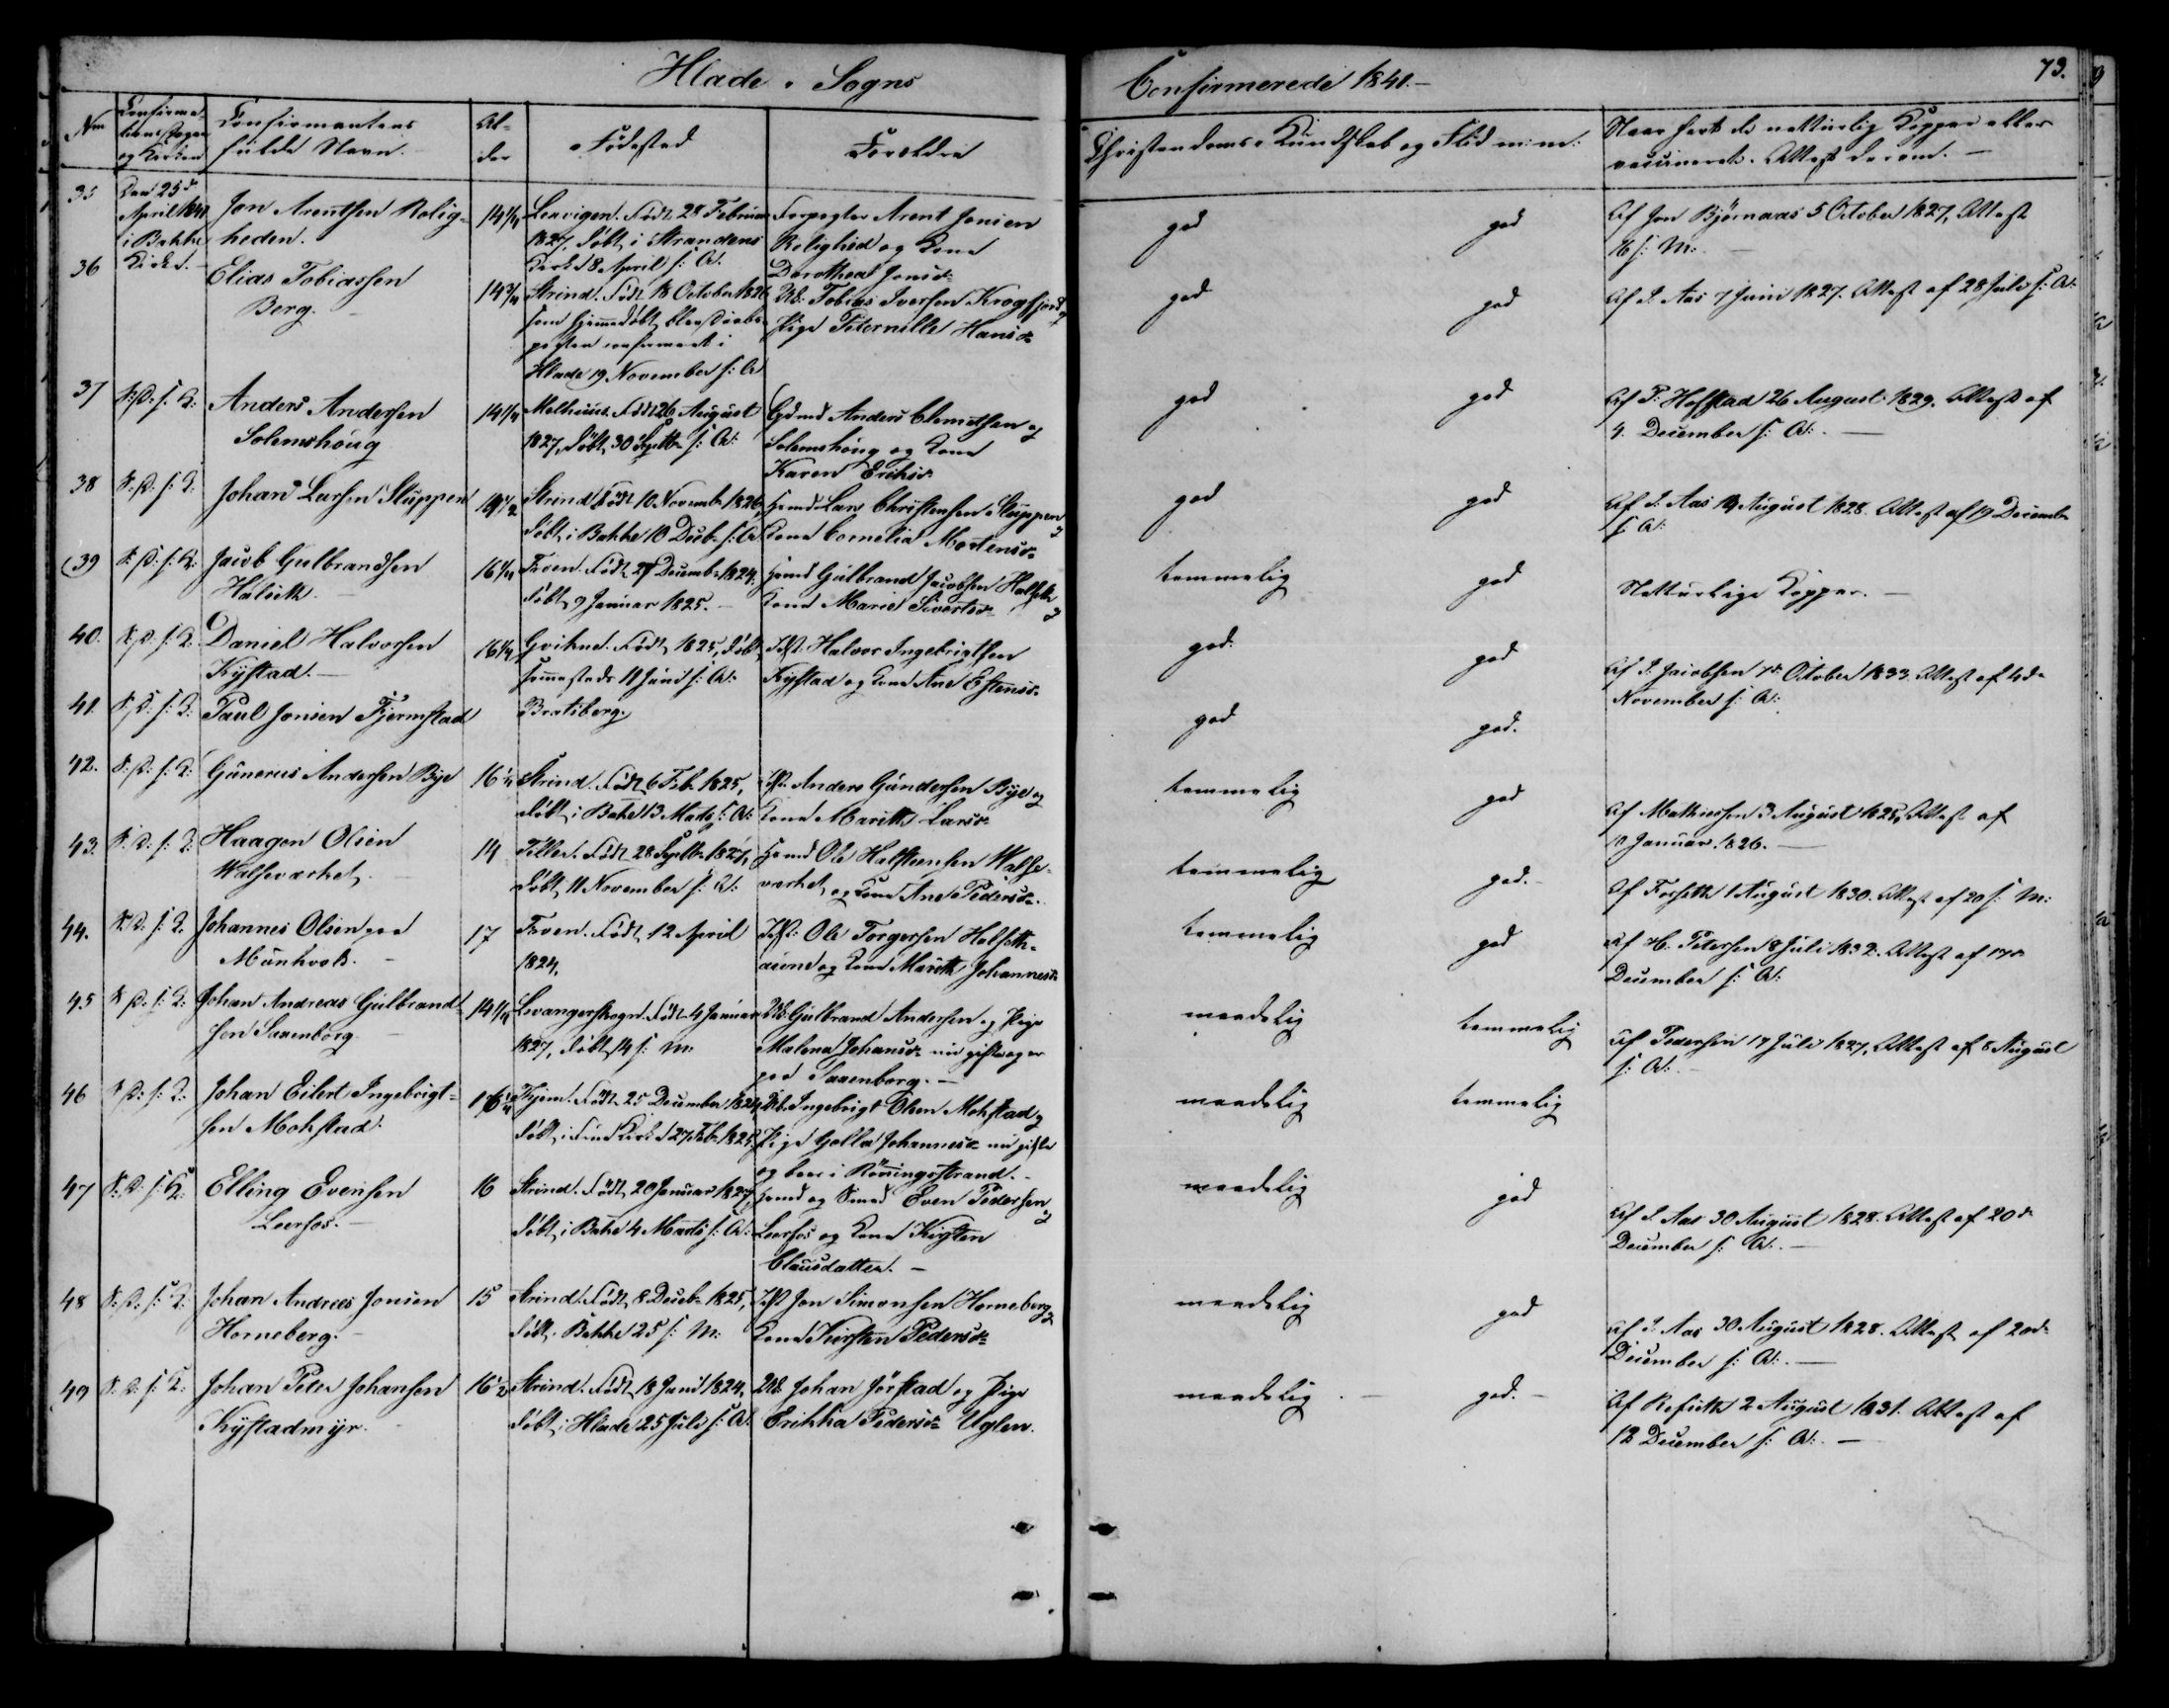 Hlade Sogns
Confirmerede 1841.
73.
Nm
Confirma-
tions Dagen
og Kirken
Confirmantens
fulde Navn.
Al-
der
Fødested
Forældre
Christendoms Kundskab og Flid m: m:
Naar havt de naturlig Kopper eller
vaccineret. Attest derom.
35
Den 25de
April 1841
i Bakke
Kirke.
Jon Arentsen Rolig-
heden.
14 1/4
Lexvigen. Født 28 Februar
1827, døbt i Strandens
Kirke 8 April s: A:
Forpagter Arent Jonsen
Rolighed og Kone
Dorothea Jonsd.
god
god
Af Jon Bjørnaas 5 October 1827, Attest
16 s: M:
36
Elias Tobiassen
Berg.
14 1/2
Strind. Født 18 October 1826
som hjemmedøbt
i
Hlade 19 November s: A
Uk: Tobias Iversen Krogfjord og
Pige Peternille Hansd.
god
god
Af P. Aas 7 Juni 1827. Attest af 28 Juli s: A:
37
S: D: s: K:
Anders Andersen
Solemshoug
14 1/4
Melhuus. Født 26 August
1827, døbt 30 Septbr s: A:
Gdmd Anders Clemetsen
Solemshoug og Kone
Karen Eriksd.
god
god
Af P. Hofstad 26 August 1829. Attest af
4. December s: A:
38
S: D: s: K:
Johan Larsen Sluppen
14 1/2
Strind. Født 10 Novembr 1826,
døbt i Bakke 10 Decbr s: A
Hmd Lars Christensen Sluppen og
Kone Cornelia Mortensd.
god
god
Af P. Aas 14 August 1828. Attest af 19 Decembr
s: A:
39
S: D: s: K:
Jacob Gulbrandsen
Halseth.
16 1/4
Froen. Født 27 Decembr 1824.
døbt 9 Januar 1825.
Hmd Gulbrand Jacobsen Halseth og
Kone Marie Sivertsd.
temmelig
god
Naturlige Kopper.
40.
S: D: s: K:
Daniel Halvorsen
Kystad.
16 1/4
Qvikne. Født 1825, døbt
sammesteds 11 Juni s: A:
Inst. Halvor Ingebrigtsen
Kystad og Kone Ane Estensd.
god
god
Af P. Jacobsen 7de October 1833. Attest af 4de
November s: A:
41.
S: D: s: K:
Paul Jonsen Fjermstad
Bratsberg.
god
god.
42.
S: D: s: K:
Gunerus Andersen Bye
16 1/4
Strind. Født 6 Feb. 1825,
døbt i Bakke 13 Marts s: A:
Inst. Anders Gundersen Bye og
Kone Marith Larsd.
temmelig
god
Af Mathiesen 3 August 1825, Attest af
10 Januar 1826.
43.
S: D: s: K:
Haagen Olsen
Walseværket.
14
Tiller. Født 28 Septbr 1827,
døbt 11 November s: A:
Hmd Ole Halstensen Walse-
værket og Kone Ane Pedersd.
temmelig
god.
Af Forseth 1 August 1830. Attest af 20 s: M:
44.
S: D: s: K:
Johannes Olsen paa
Munkvold.
17
Froen. Født 12 April
1824,
Inst: Ole Torgersen Halseth-
aune og Kone Marith Johannesd.
temmelig
god
Af H. Petersen 8 Juli 1832. Attest af 17de
December s: A:
45
S: D: s: K:
Johan Andreas Gulbrand-
sen Saxenborg
14 1/4
Levangerskogn. Født 4 Januar
1827, døbt 14 s: M:
Uk: Gulbrand Andersen og Pige
Malena Johansd. nu gifte og er
paa Saxenborg.
maadelig
temmelig
Af Pedersen 17 Juli 1827, Attest af 8 August
s: A:
46
S: D: s: K:
Johan Eilert Ingebrigt-
sen Mokstad
16 1/4
Hjem. Født 25 December 1824,
døbt i Kirke 27 Feb. 1825.
Uk. Ingebrigt Olsen Mokstad og
Pige Golla Johannesd. nu gifte
og boer i Rønningstrand.
maadelig
temmelig
47
S: D: s: K:
Elling Evensen
Leerfos.
16
Strind. Født 20 Januar 1827,
døbt i Bakke 4 Marts s: A:
Hmd og Smed Even Pedersen
Leerfos og Kone Kirsten
Clausdatter.
maadelig
god
Af P. Aas 30 August 1828. Attest af 20de
December s: A:
48
S: D: s: K:
Johan Andreas Jonsen
Horneberg.
15
Strind. Født 8 Decbr 1825,
døbt i Bakke 25 s: M:
Inst Jon Simonsen Horneberg og
Kone Kirsten Pedersd.
maadelig
god
Af P. Aas 30 August 1828. Attest af 20de
December s: A:
49
S: D: s: K:
Johan Peter Johansen
Kystadmyr.
16 1/2
Strind. Født 18 Juni 1824,
døbt i Hlade 25 Juli s: A:
Uk. Johan Jørstad og Pige
Erikka Pedersd. Uglen.
maadelig
god.
Af Refseth 2 August 1831. Attest af
12 December s: A: